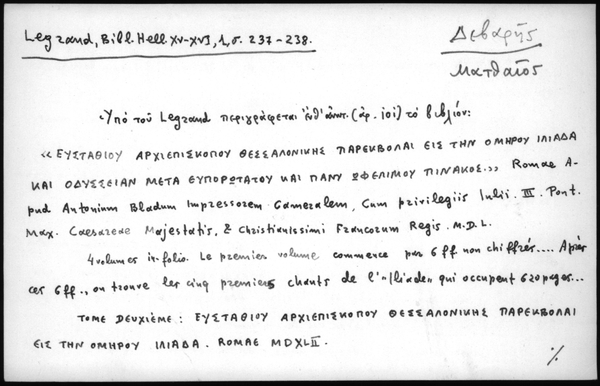 Legrand, Bibl. Hell. XV-XVI, 1, σ. 237-238.
Δεβαρῆς
Ματθαῖος
Ὑπὸ τοῦ Legrand περιγράφεται (ἀρ. 101) τὸ βιβλίον:
«ΕΥΣΤΑΘΙΟΥ ΑΡΧΙΕΠΙΣΚΟΠΟΥ ΘΕΣΣΑΛΟΝΙΚΗΣ ΠΑΡΕΚΒΟΛΑΙ ΕΙΣ ΤΗΝ ΟΜΗΡΟΥ ΙΛΙΑΔΑ
ΚΑΙ ΟΔΥΣΣΕΙΑΝ ΜΕΤΑ ΕΥΠΟΡΩΤΑΤΟΥ ΚΑΙ ΠΑΝΥ ΩΦΕΛΙΜΟΥ ΠΙΝΑΚΟΣ.» Romae A-
pud Antonium Bladum Impressorem Cameralem, Cum privilegiis Iulii. III. Pont.
Max. Caesareae Majestatis, & Christianissimi Francorum Regis. M.D.L.
4 volumes in-folio. Le premier volume commence par 6 ff non chiffrés.... Après
ces 6 ff., on trouve les cinq premiers chants de l'"Iliade" qui occupent 620 pages...
TOME DEUXIÈME: ΕΥΣΤΑΘΙΟΥ ΑΡΧΙΕΠΙΣΚΟΠΟΥ ΘΕΣΣΑΛΟΝΙΚΗΣ ΠΑΡΕΚΒΟΛΑΙ
ΕΙΣ ΤΗΝ ΟΜΗΡΟΥ ΙΛΙΑΔΑ. ROMAE MDXLII.
%